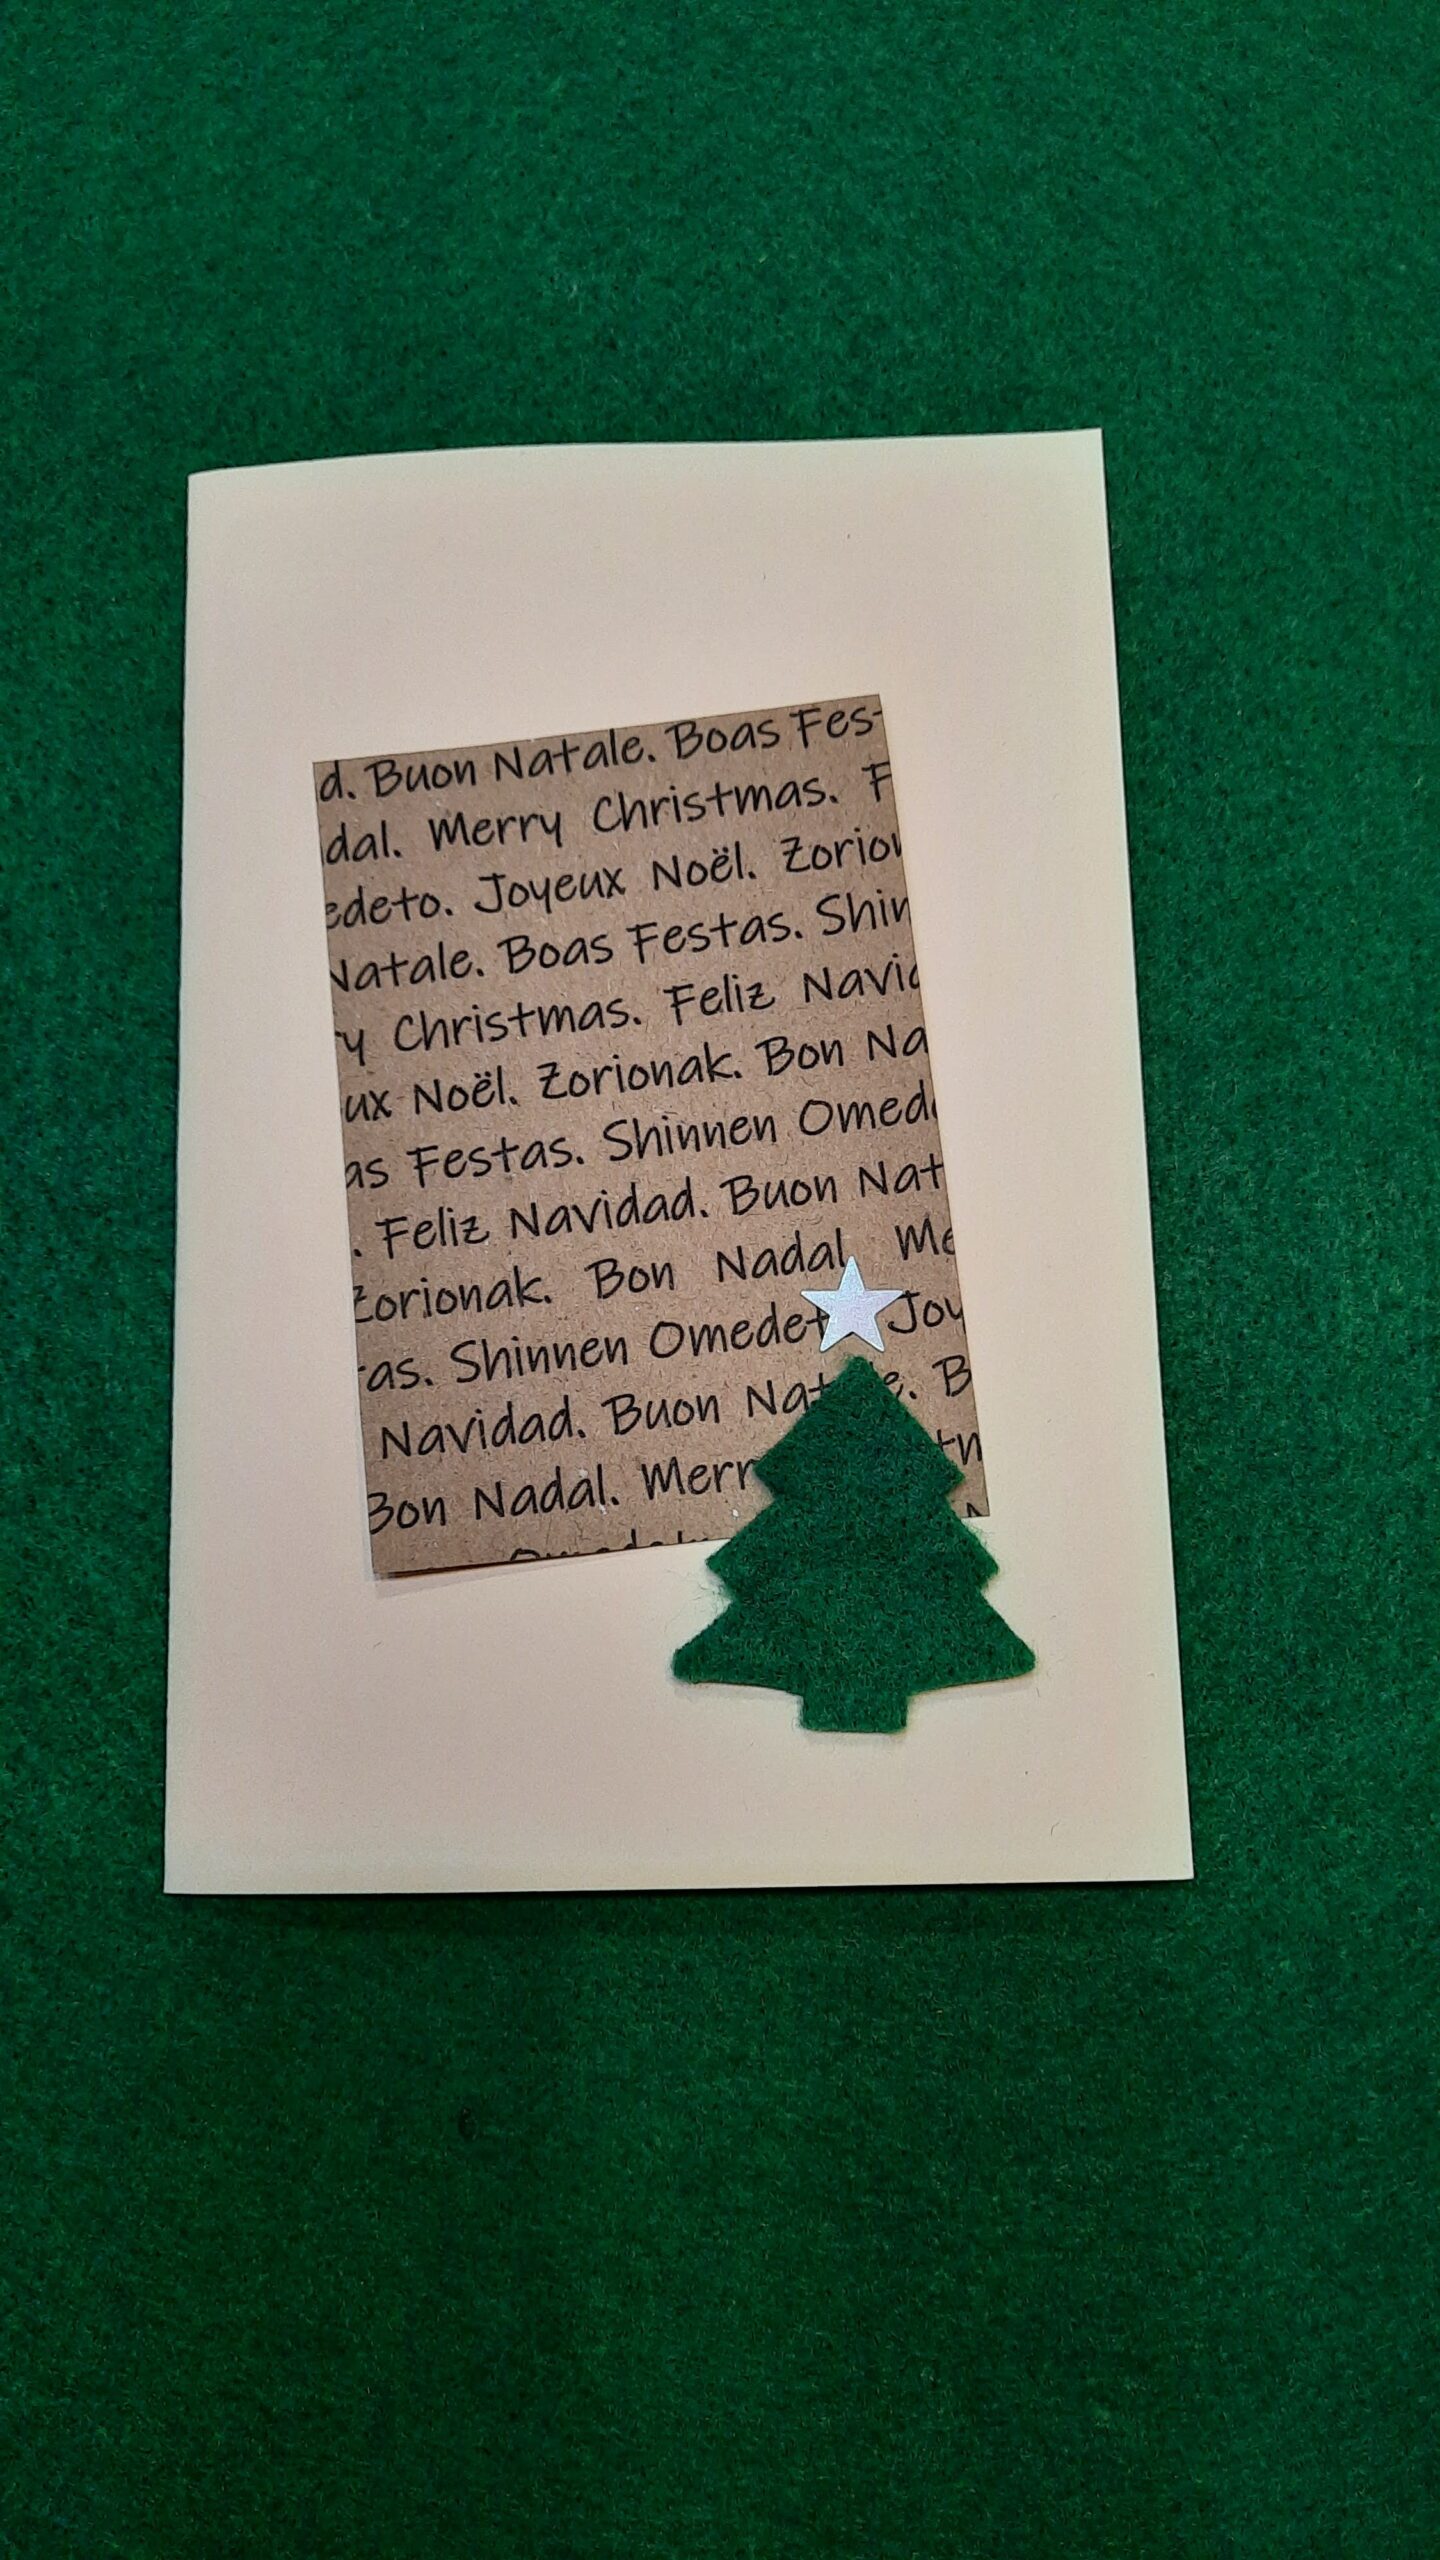 d. Buon Natale. Boas Fes
dal. Merry Christmas. F
edeto. Joyeux Noël. Zorion
Natale. Boas Festas. Shin
y Christmas. Feliz Navid
ux Noël. Zorionak. Bon Na
as Festas. Shinnen Omed
. Feliz Navidad. Buon Nat
Zorionak. Bon Nadal. Me
as. Shinnen Omedet Joy
Navidad. Buon Nat e. B
Bon Nadal. Merr tm